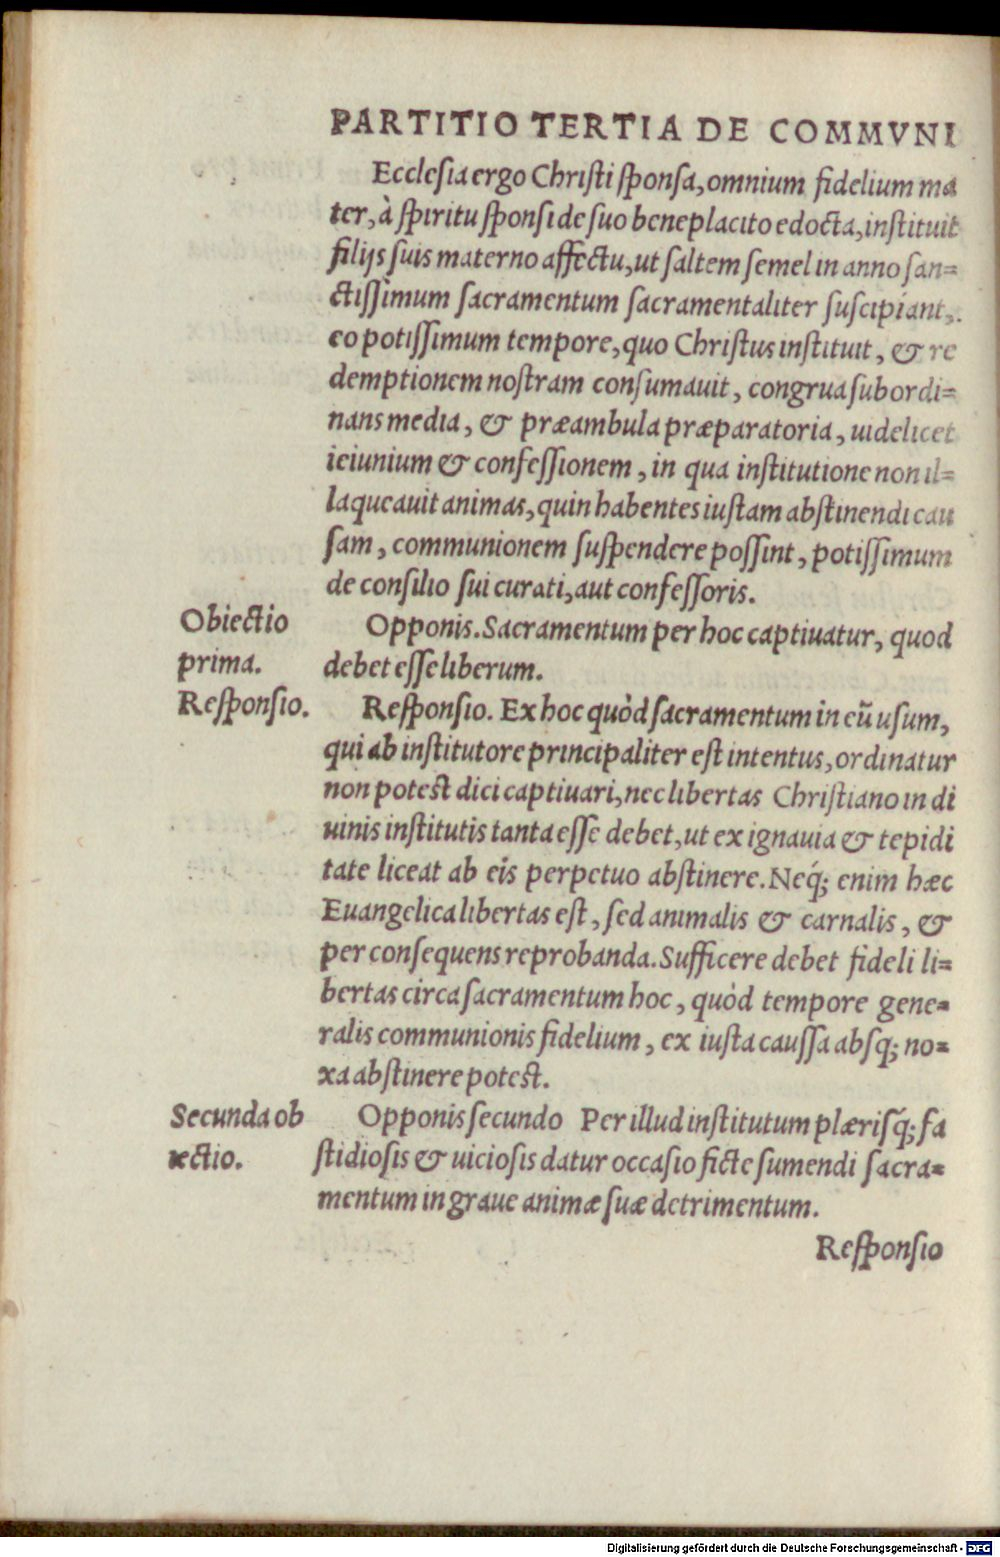 PARTITIO TERTIA DE COMMVNI
Ecclesia ergo Christi sponsa, omnium fidelium ma
ter, à spiritu sponsi de suo beneplacito edocta, instituit
filijs suis materno affectu, ut saltem semel in anno san=
ctissimum sacramentum sacramentaliter suscipiant,
eo potissimum tempore, quo Christus instituit, & re
demptionem nostram consumauit, congrua subordi=
nans media, & præambula præparatoria, uidelicet
ieiunium & confessionem, in qua institutione non il=
laqueauit animas, quin habentes iustam abstinendi cau
sam, communionem suspendere possint, potissimum
de consilio sui curati, aut confessoris.
Obiectio
prima.
Opponis. Sacramentum per hoc captiuatur, quod
debet esse liberum.
Responsio.
Responsio. Ex hoc quòd sacramentum in eũ usum,
qui ab institutore principaliter est intentus, ordinatur
non potest dici captiuari, nec libertas Christiano in di
uinis institutis tanta esse debet, ut ex ignauia & tepidi
tate liceat ab eis perpetuo abstinere. Neq́; enim hæc
Euangelica libertas est, sed animalis & carnalis, &
per consequens reprobanda. Sufficere debet fideli li=
bertas circa sacramentum hoc, quòd tempore gene=
ralis communionis fidelium, ex iusta caussa absq; no=
xa abstinere potest.
Secunda ob
iectio.
Opponis secundo Per illud institutum plærisq́; fa
stidiosis & uiciosis datur occasio ficte sumendi sacra=
mentum in graue animæ suæ detrimentum.
Responsio
Digitalisierung gefördert durch die Deutsche Forschungsgemeinschaft - DFG